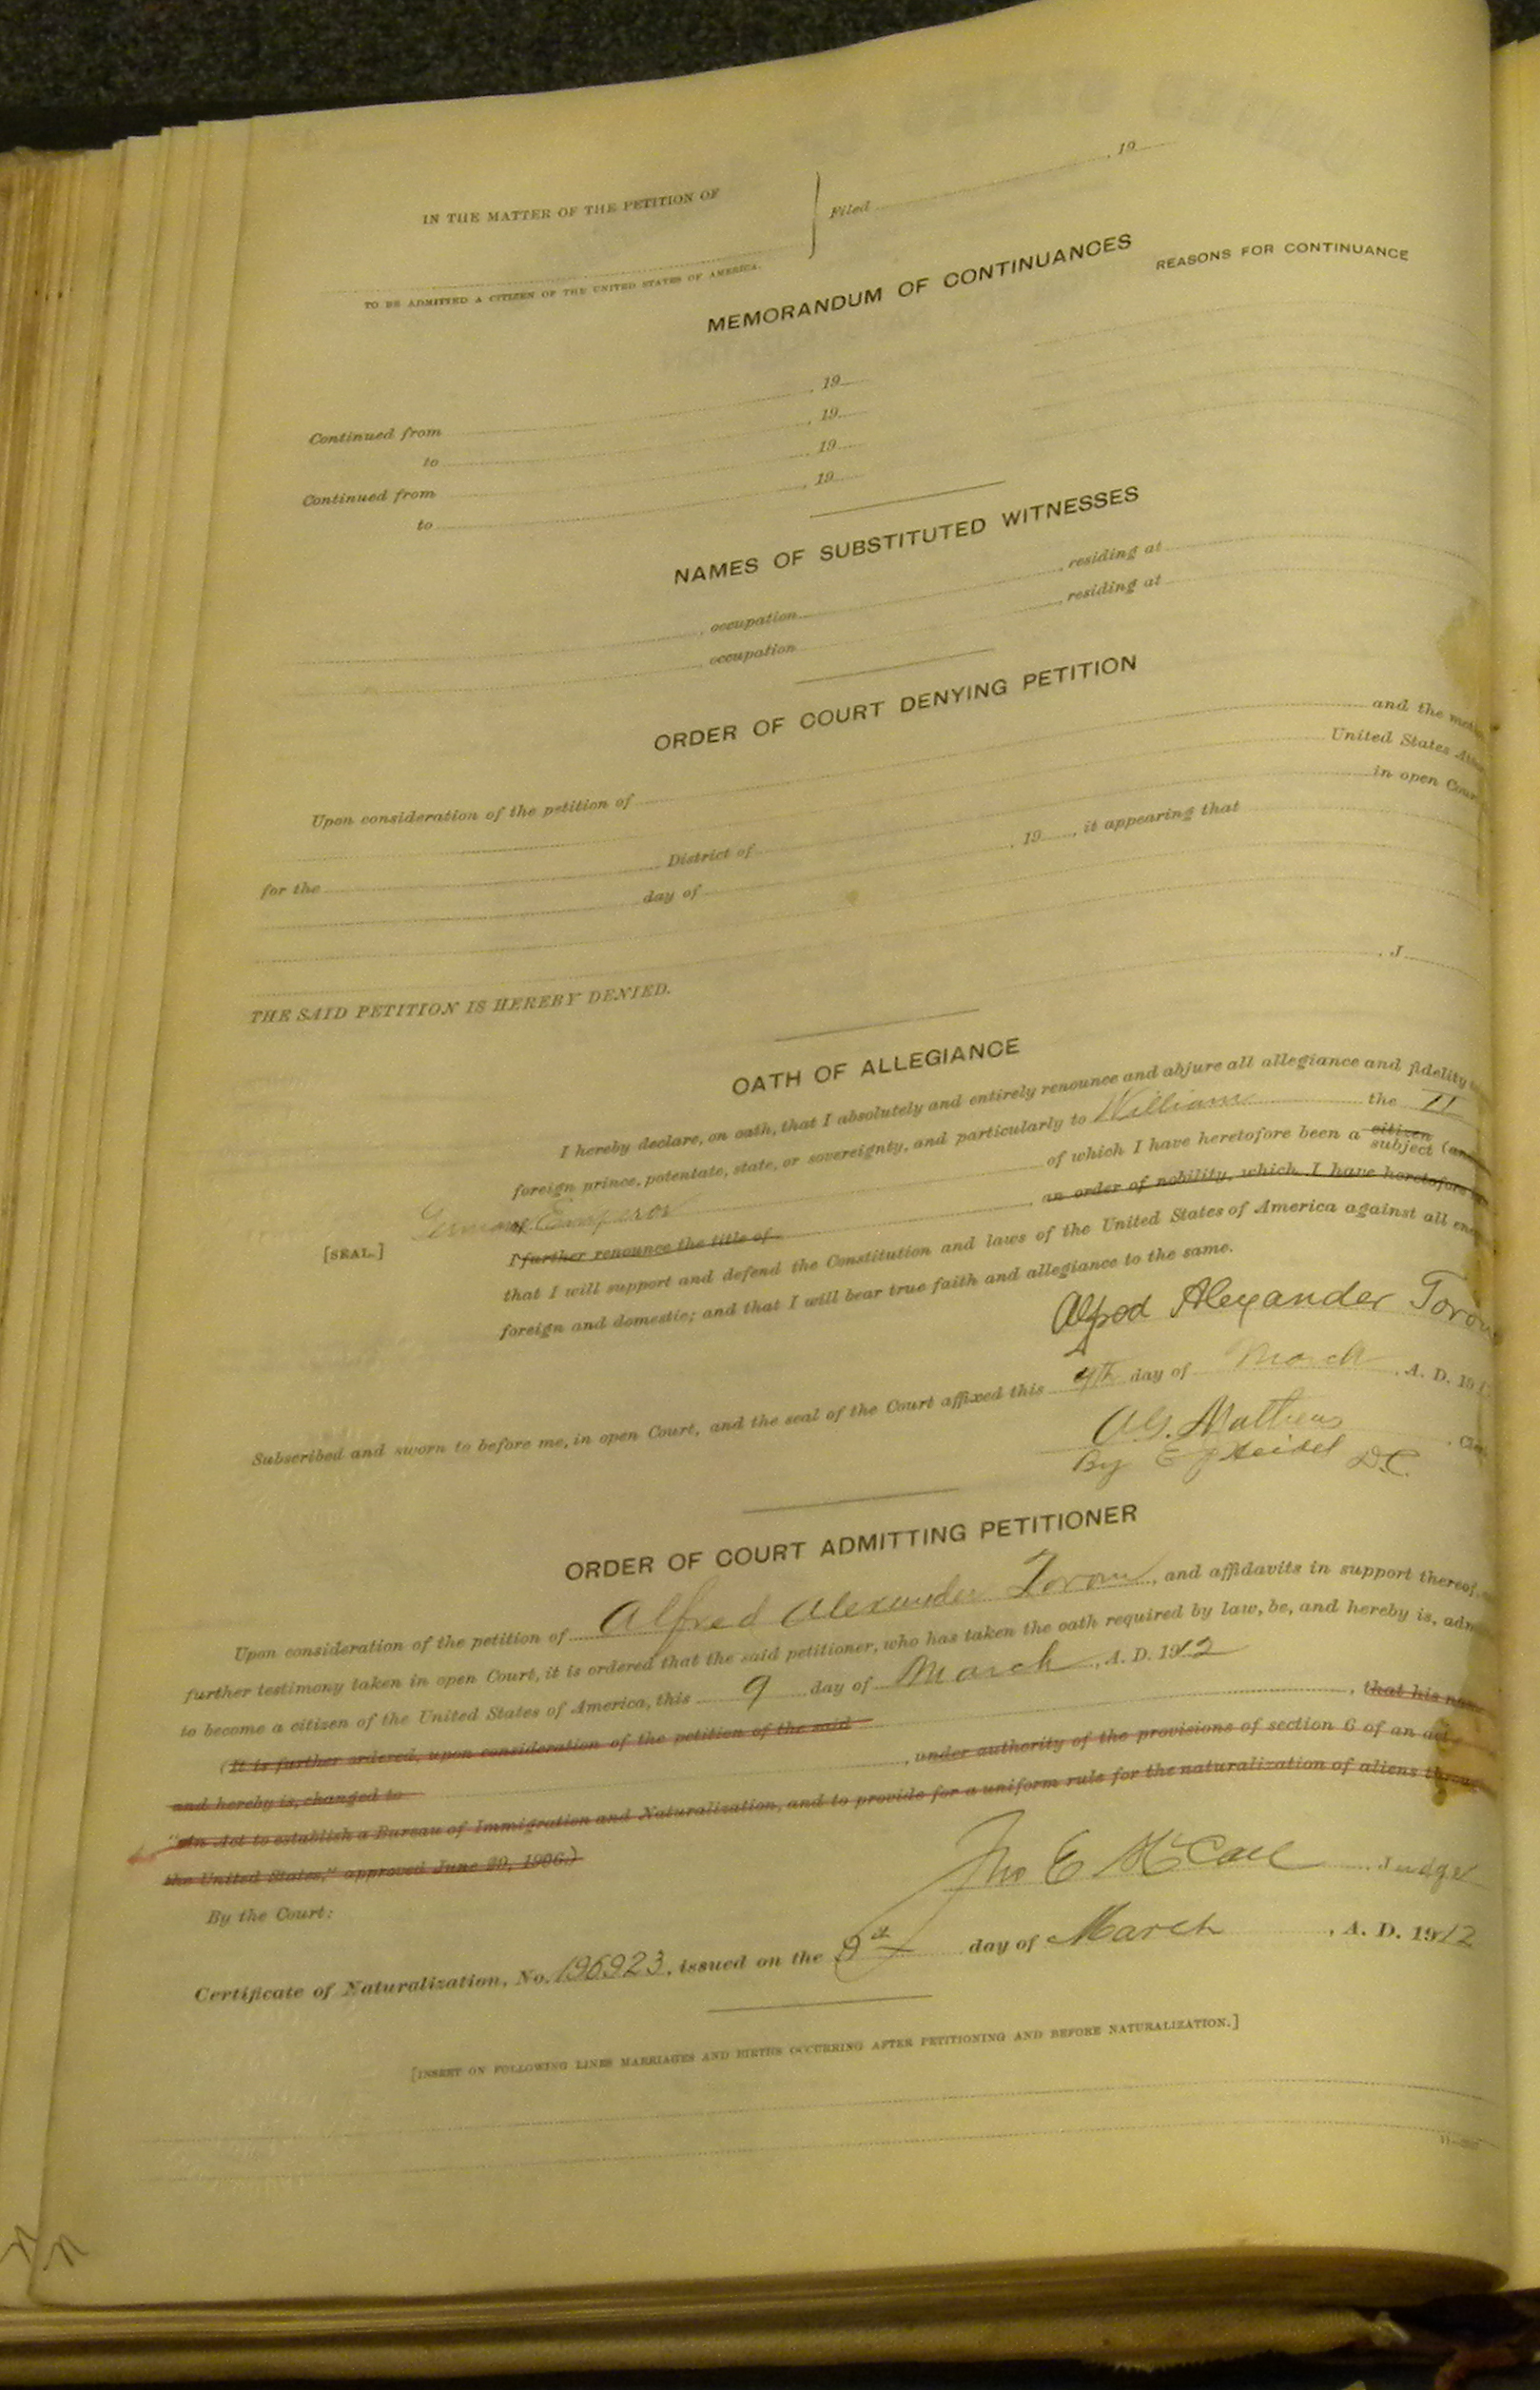 IN THE MATTER OF THE PETITION OF
Filed , 19
TO BE ADMITTED A CITIZEN OF THE UNITED STATES OF AMERICA.
MEMORANDUM OF CONTINUANCES
REASONS FOR CONTINUANCE
Continued from , 19
to , 19
Continued from , 19
to , 19
NAMES OF SUBSTITUTED WITNESSES
, occupation , residing at
, occupation , residing at
ORDER OF COURT DENYING PETITION
Upon consideration of the petition of and the
United States
for the District of in open
day of , 19 , it appearing that
THE SAID PETITION IS HEREBY DENIED.
, J
OATH OF ALLEGIANCE
I hereby declare, on oath, that I absolutely and entirely renounce and abjure all allegiance and fidelity
foreign prince, potentate, state, or sovereignty, and particularly to William the II
German Emperor of which I have heretofore been a citizen subject
I further renounce the title of , an order of nobility, which I have heretofore
[SEAL.]
that I will support and defend the Constitution and laws of the United States of America against all
foreign and domestic; and that I will bear true faith and allegiance to the same.
Alfred Alexander
Subscribed and sworn to before me, in open Court, and the seal of the Court affixed this 9th day of March , A. D. 19
By D.C.
ORDER OF COURT ADMITTING PETITIONER
Upon consideration of the petition of Alfred Alexander , and affidavits in support thereof,
further testimony taken in open Court, it is ordered that the said petitioner, who has taken the oath required by law, be, and hereby is,
to become a citizen of the United States of America, this 9 day of March , A. D. 1912
(It is further ordered, upon consideration of the petition of the said , that his
and hereby is, changed to , under authority of the provisions of section 6 of an act
"An Act to establish a Bureau of Immigration and Naturalization, and to provide for a uniform rule for the naturalization of aliens
the United States," approved June 29, 1906.)
By the Court: Jno E McCall , Judge
Certificate of Naturalization, No. 196923, issued on the 9th day of March , A. D. 1912
[INSERT ON FOLLOWING LINES MARRIAGES AND BIRTHS OCCURRING AFTER PETITIONING AND BEFORE NATURALIZATION.]